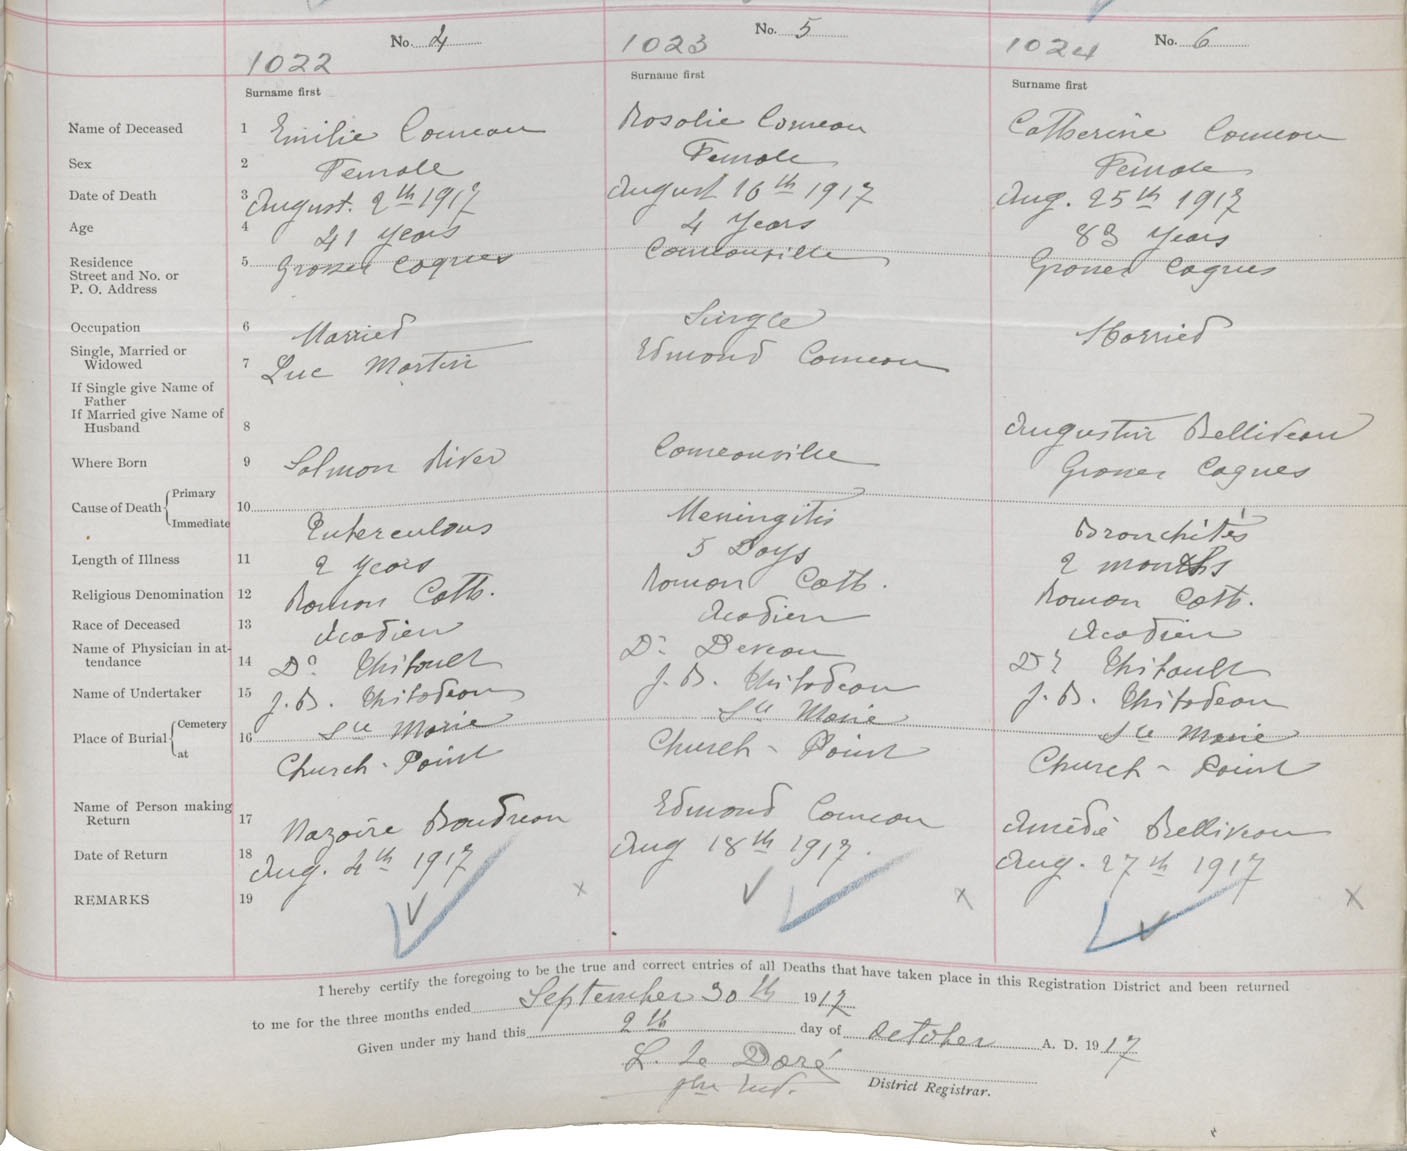 No. 4
No. 5
No. 6
1022
1023
1024
Surname first
Surname first
Surname first
Name of Deceased 1 Emilie Comeau Rosalie Comeau Catherine Comeau
Sex 2 Female Female Female
Date of Death 3 August. 2th 1917 August 16th 1917 Aug. 25th 1917
Age 4 41 years 4 years 83 years
Residence 5 Grosses Coques Comeauville Grosses Coques
Street and No. or
P. O. Address
Occupation 6 Married Single Married
Single, Married or
Widowed 7 Luc Martin Edmond Comeau
If Single give Name of
Father
If Married give Name of
Husband 8 Augustin Belliveau
Where Born 9 Salmon River Comeauville Grosses Coques
Cause of Death { Primary 10
Immediate Tuterculous Meningitis Bronchites
Length of Illness 11 2 years 5 Days 2 months
Religious Denomination 12 Roman Cath. Roman Cath. Roman Cath.
Race of Deceased 13 Acadien Acadien Acadien
Name of Physician in at-
tendance 14 Dr Thibault Dr Deveau Dr Thibault
Name of Undertaker 15 J. B. Thibodeau J. B. Thibodeau J. B. Thibodeau
Place of Burial { Cemetery 16 Ste Marie Ste Marie Ste Marie
at Church-Point Church-Point Church-Point
Name of Person making
Return 17 Nazaire Boudreau Edmond Comeau Amédé Belliveau
Date of Return 18 Aug. 4th 1917 Aug 18th 1917. Aug. 27th 1917
REMARKS 19 x x x
I hereby certify the foregoing to be the true and correct entries of all Deaths that have taken place in this Registration District and been returned
to me for the three months ended September 30th 1917
Given under my hand this 2th day of October A. D. 1917
L. Le Doré
District Registrar.